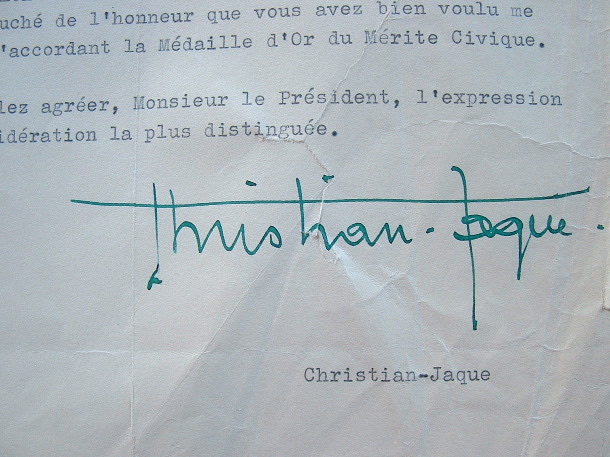 uché de l'honneur que vous avez bien voulu me
'accordant la Médaille d'Or du Mérite Civique.
lez agréer, Monsieur le Président, l'expression
idération la plus distinguée.
Christian-Jaque.
Christian-Jaque